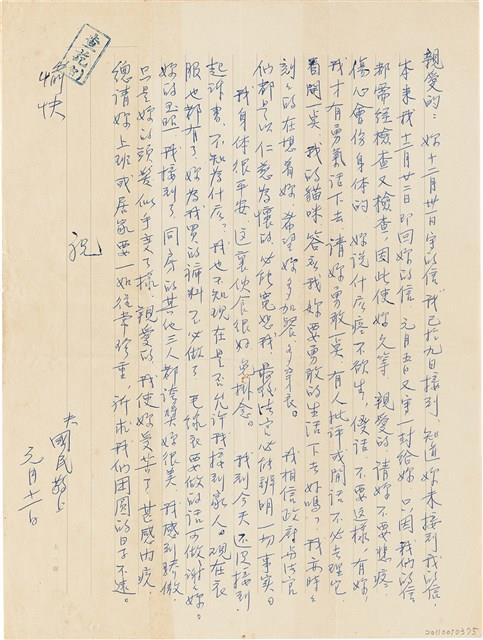 親愛的：妳十二月卅一日寫的信，我已拾九日接到，知道妳未接到我的信，
本來我十二月廿二日即回妳的信，元月五日又寫一封給妳，只因我们的信
都需經檢查又檢查，因此使妳久等，親愛的請妳不要悲疼
傷心會伤身体的，妳説什広疼不欲生，傻話，不要這樣，有妳，
我才有勇氣活下去，請妳勇敢一奌，有人批評或閒話不必去理它，
看開一奌，我的貓咪答应我妳要勇敢的生活下去好嗎？我要時々
刻々的在想着妳，希望妳多加餐，多穿衣。我相信政府与法官
们都是以仁慈為懷的，必能寬恕我，最後法官必能辨明一切事实。
我身体很平安，這裏伙食很好免掛念。我到今天还沒接到
起訴書，不知為什広？我也不知現在是不允許我接到家人。現在衣
服也都有了，妳為我買的褲料不必做了，毛線衣要做的話可做，謝々妳。
妳的玉照我接到了，同房的其他三人都誇獎妳很美，我感到驕傲，
只是妳的頭髮似乎变了様，親愛的，我使妳受苦了，甚感内疚，
總請妳上班或居家要一如往常珍重，祈求我们团圓的日子不遠。
祝
愉快
夫國民敬上
元月十二日
20110070375